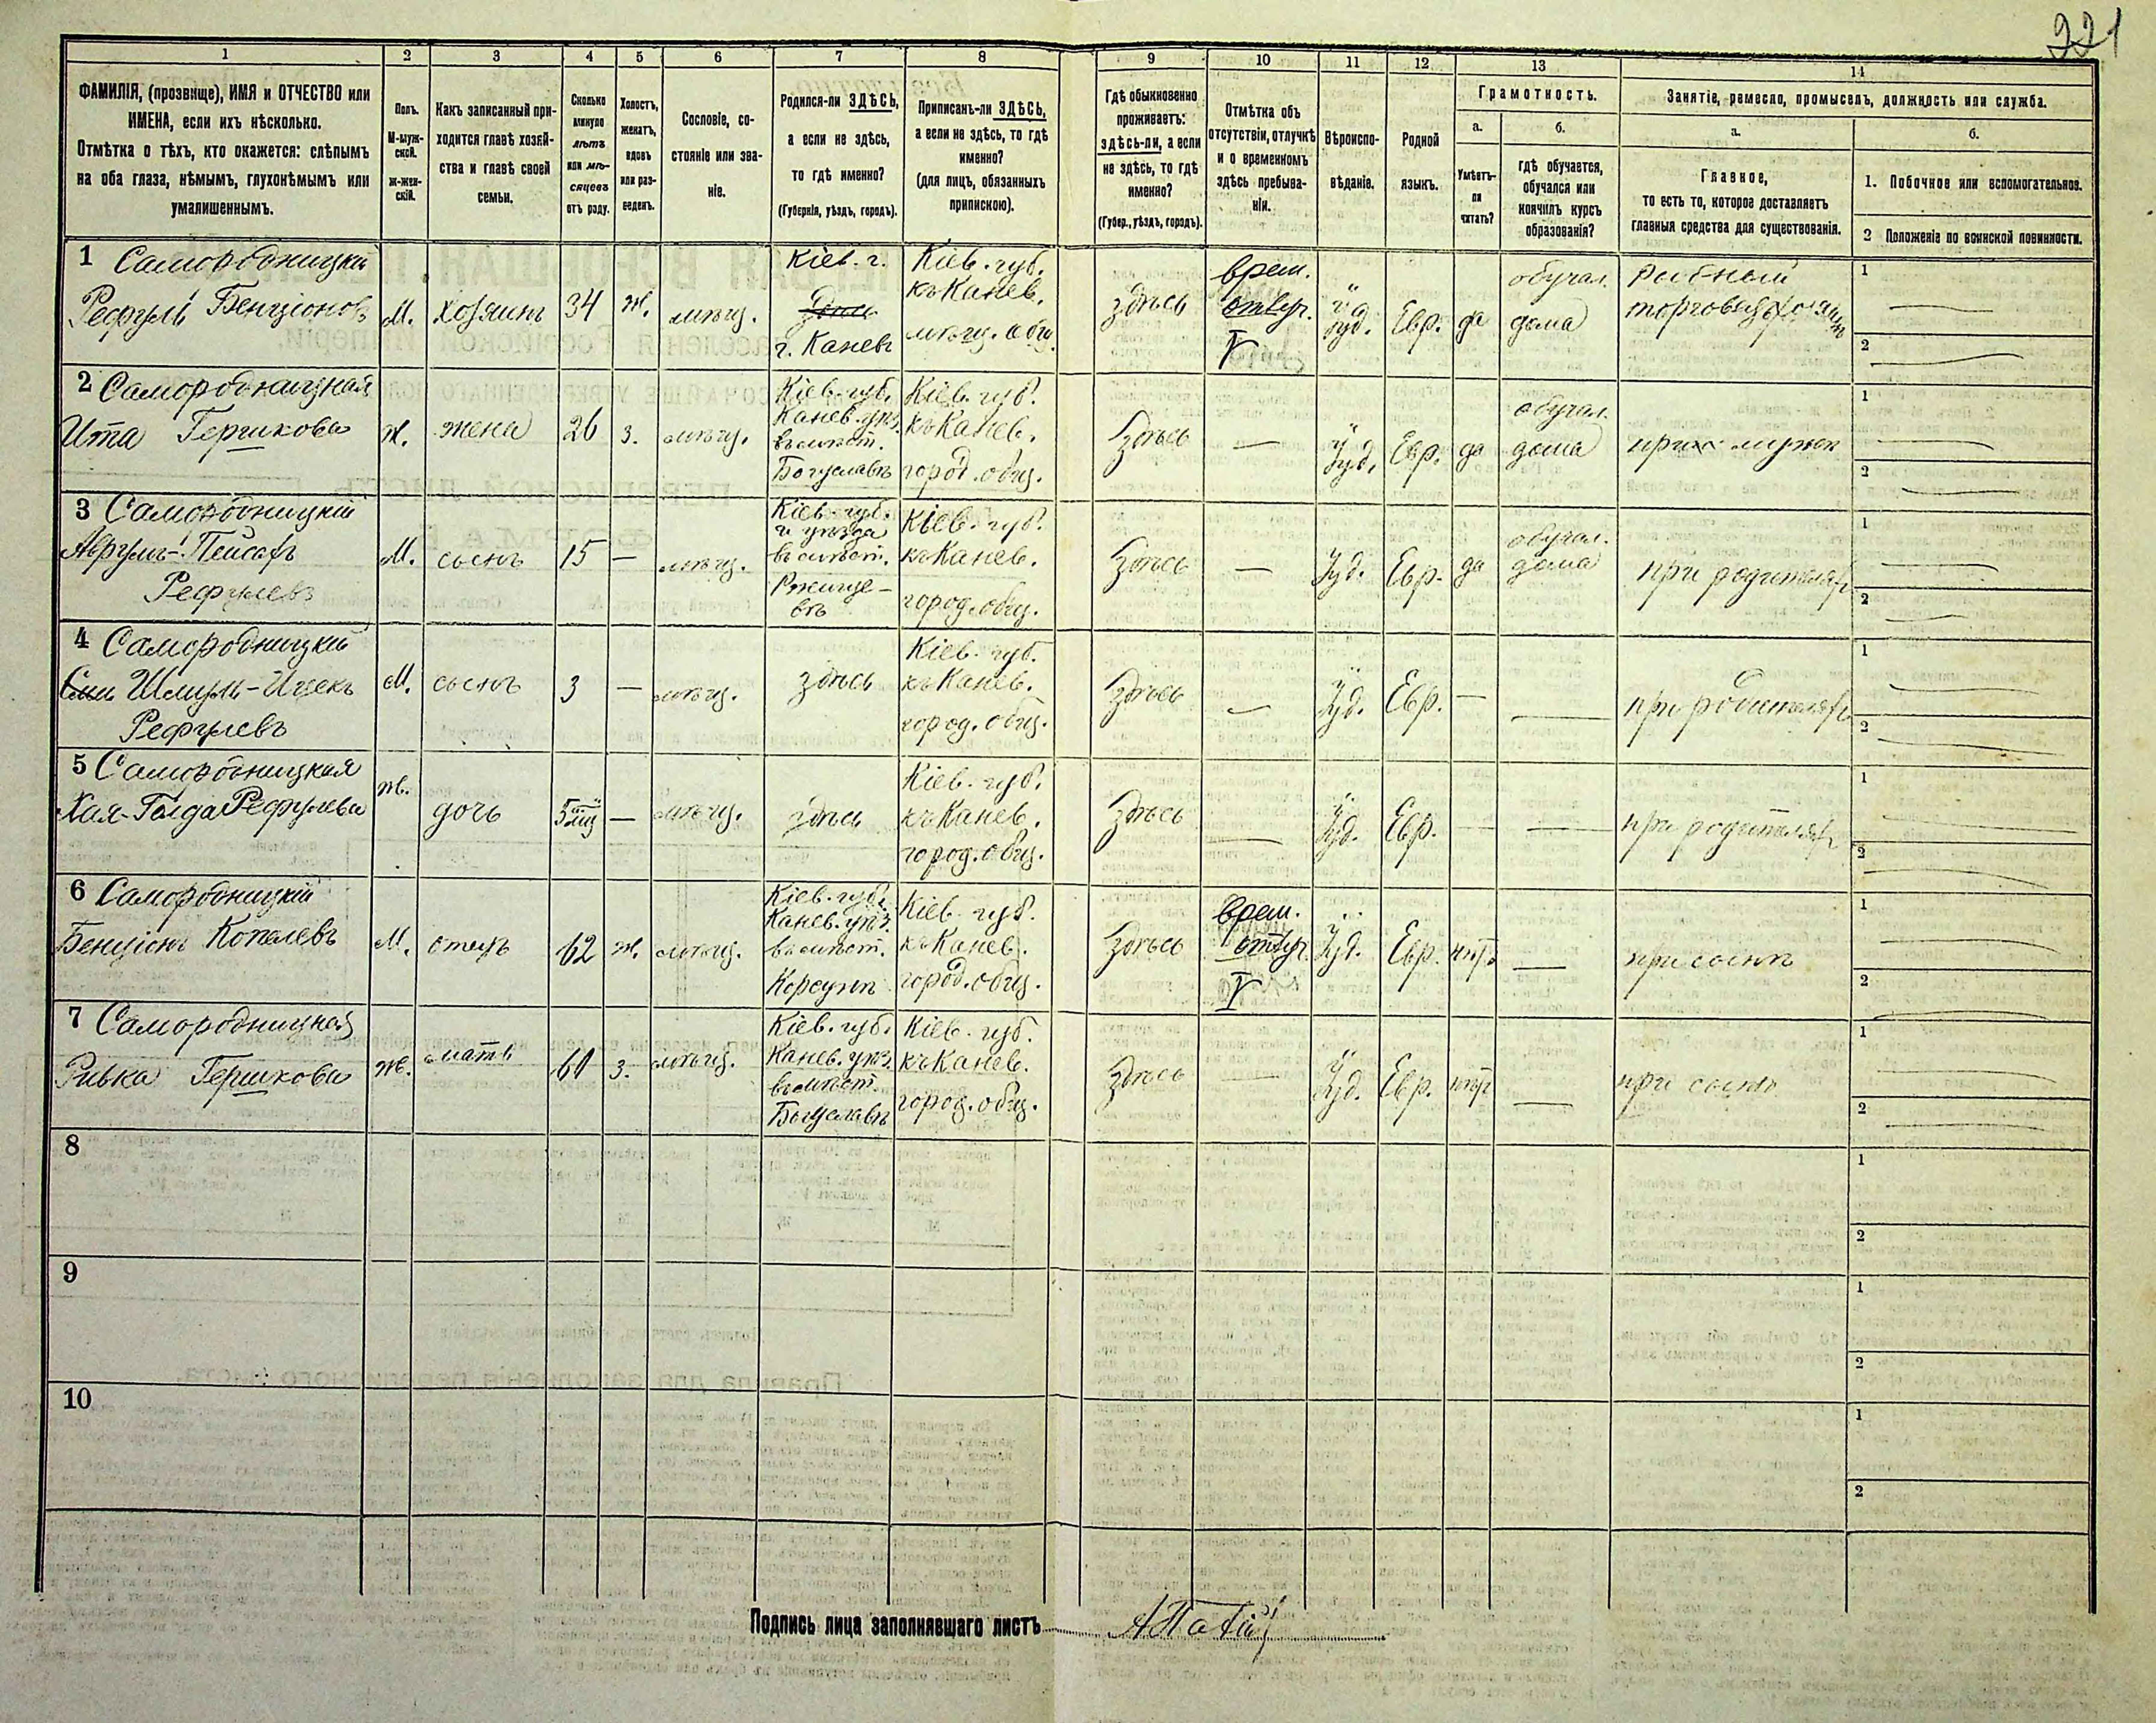 221
1 2 3 4 5 6 7 8 9 10 11 12 13 14
ФАМИЛІЯ, (прозвище), ИМЯ и ОТЧЕСТВО или
ИМЕНА, если ихъ нѣсколько.
Отмѣтка о тѣхъ, кто окажется: слѣпымъ
на оба глаза, нѣмымъ, глухонѣмымъ или
умалишеннымъ.
Полъ.
М-муж-
ской.
Ж-жен-
скій.
Какъ записанный при-
ходится главѣ хозяй-
ства и главѣ своей
семьи.
Сколько
минуло
лѣтъ
или мѣ-
сяцевъ
отъ роду.
Холостъ,
женатъ,
вдовъ
или раз-
веденъ.
Сословіе, со-
стояніе или зва-
ніе.
Родился-ли ЗДѢСЬ,
а если не здѣсь,
то гдѣ именно?
(Губернія, уѣздъ, городъ).
Приписанъ-ли ЗДѢСЬ,
а если не здѣсь, то гдѣ
именно?
(для лицъ, обязанныхъ
припискою).
Гдѣ обыкновенно
проживаетъ:
здѣсь-ли, а если
не здѣсь, то гдѣ
именно?
(Губер., уѣздъ, городъ).
Отмѣтка объ
отсутствіи, отлучкѣ
и о временномъ
здѣсь пребыва-
ніи.
Вѣроиспо-
вѣданіе.
Родной
языкъ.
Грамотность.
а.
Умѣетъ-
ли
читать?
б.
гдѣ обучается,
обучался или
кончилъ курсъ
образованія?
Занятіе, ремесло, промыселъ, должность или служба.
а.
Главное,
то есть то, которое доставляетъ
главныя средства для существованія.
б.
1. Побочное или вспомогательное.
2 Положеніе по воинской повинности.
1 Самородницкій
Рефулъ Бенціоновъ
М.
хозяинъ
34
ж.
мѣщ.
Кіев. г.
здѣсь
г. Каневъ
Кіев. губ.
къ Канев.
мѣщ. общ.
здѣсь
врем.
отлуч.
V
Іуд.
Евр.
да
обучал.
дома
рыбный
торговецъ хозяинъ
1 —
2 —
2 Самородницкая
Ита Гершкова
ж.
жена
26
з.
мѣщ.
Кіев. губ.
Канев. уѣз.
въ мѣст.
Богуславъ
Кіев. губ.
къ Канев.
город. общ.
здѣсь
—
Іуд.
Евр.
да
обучал.
дома
при мужѣ
1 —
2 —
3 Самородницкій
Аврумъ-Пейсахъ
Рефулевъ
М.
сынъ
15
—
мѣщ.
Кіев. губ.
и уѣзда
въ мѣст.
Ржище-
въ
Кіев. губ.
къ Канев.
город. общ.
здѣсь
—
Іуд.
Евр.
да
обучал.
дома
при родителяхъ
1 —
2 —
4 Самородницкій
Шмуль-Ицекъ
Рефулевъ
М.
сынъ
3
—
мѣщ.
здѣсь
Кіев. губ.
къ Канев.
город. общ.
здѣсь
—
Іуд.
Евр.
—
—
при родителяхъ
1 —
2 —
5 Самородницкая
Хая-Голда Рефулева
ж.
дочь
5 мц
—
мѣщ.
здѣсь
Кіев. губ.
къ Канев.
город. общ.
здѣсь
—
Іуд.
Евр.
—
—
при родителяхъ
1 —
2 —
6 Самородницкій
Бенціонъ Копелевъ
М.
отецъ
62
ж.
мѣщ.
Кіев. губ.
Канев. уѣз.
въ мѣст.
Корсунѣ
Кіев. губ.
къ Канев.
город. общ.
здѣсь
врем.
отлуч.
V
Іуд.
Евр.
нѣт.
—
при сынѣ
1 —
2 —
7 Самородницкая
Ривка Гершкова
ж.
мать
60
з.
мѣщ.
Кіев. губ.
Канев. уѣз.
въ мѣст.
Богуславъ
Кіев. губ.
къ Канев.
город. общ.
здѣсь
—
Іуд.
Евр.
нѣт
—
при сынѣ
1 —
2 —
8
1
2
9
1
2
10
1
2
Подпись лица заполнявшаго листъ